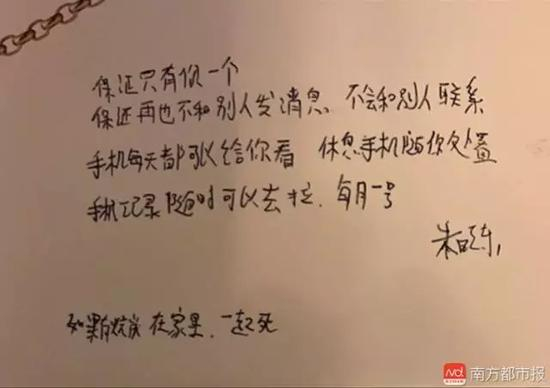 保证只有你一个
保证再也不和别人发消息 不会和别人联系
手机每天都可以给你看 休息手机随你处置
手机记录随时可以去拉，每月一号
朱晓东，
如果有 在家里，一起死
南方都市报